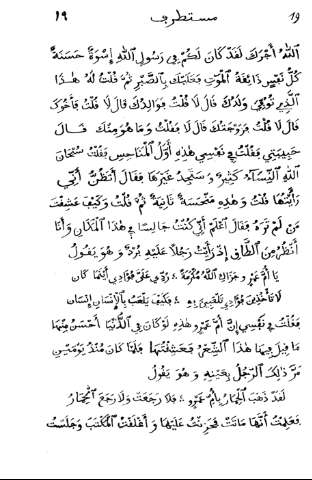 19 مستطرف ١٩
ٱللهُ أَجْرَكَ لَقَدْ كَانَ لَكُمْ فِي رَسُولِ ٱللهِ إِسْوَةٌ حَسَنَةٌ
كُلُّ نَفْسٍ ذَائِقَةُ ٱلْمَوْتِ فَعَلَيْكَ بِٱلصَّبْرِ ثُمَّ قُلْتُ لَهُ هٰذَا
ٱلَّذِي تُوُفِّيَ وَلَدُكَ قَالَ لَا قُلْتُ فَوَالِدُكَ قَالَ لَا قُلْتُ فَأَخُوكَ
قَالَ لَا قُلْتُ فَزَوْجَتُكَ قَالَ لَا فَقُلْتُ وَمَا هُوَ مِنْكَ قَالَ
حَبِيبَتِي فَقُلْتُ فِي نَفْسِي هٰذِهِ أَوَّلُ ٱلْمَنَاحِسِ فَقُلْتُ سُبْحَانَ
ٱللهِ ٱلنِّسَآءُ كَثِيرٌ وَسَتَجِدُ غَيْرَهَا فَقَالَ أَتَظُنُّ أَنِّي
رَأَيْتُهَا قُلْتُ وَهٰذِهِ مَنْحَسَةٌ ثَانِيَةٌ ثُمَّ قُلْتُ وَكَيْفَ عَشِقْتَ
مَنْ لَمْ تَرَهُ فَقَالَ ٱعْلَمْ أَنِّي كُنْتُ جَالِسًا فِي هٰذَا ٱلْمَكَانِ وَأَنَا
أَنْظُرُ مِنَ ٱلطَّاقِ إِذْ رَأَيْتُ رَجُلًا عَلَيْهِ بُرْدٌ وَهُوَ يَقُولُ
يَا أُمَّ عَمْرٍو جَزَاكِ ٱللهُ مَكْرُمَةً ؞ رُدِّي عَلَيَّ فُؤَادِي أَيْنَمَا كَانَ
لَا تَأْخُذِينَ فُؤَادِي تَلْعَبِينَ بِهِ ؞ فَكَيْفَ يَلْعَبُ بِٱلْإِنْسَانِ إِنْسَانُ
فَقُلْتُ فِي نَفْسِي إِنَّ أُمَّ عَمْرٍو هٰذِهِ لَوْ كَانَ فِي ٱلدُّنْيَا أَحْسَنُ مِنْهَا
مَا قِيلَ فِيهَا هٰذَا ٱلشِّعْرُ فَعَشِقْتُهَا فَلَمَّا كَانَ مُنْذُ يَوْمَيْنِ
مَرَّ ذٰلِكَ ٱلرَّجُلُ بِعَيْنِهِ وَهُوَ يَقُولُ
لَقَدْ ذَهَبَ ٱلْحِمَارُ بِأُمِّ عَمْرٍو ؞ فَلَا رَجَعَتْ وَلَا رَجَعَ ٱلْحِمَارُ
فَعَلِمْتُ أَنَّهَا مَاتَتْ فَحَزِنْتُ عَلَيْهَا وَأَغْلَقْتُ ٱلْمَكْتَبَ وَجَلَسْتُ